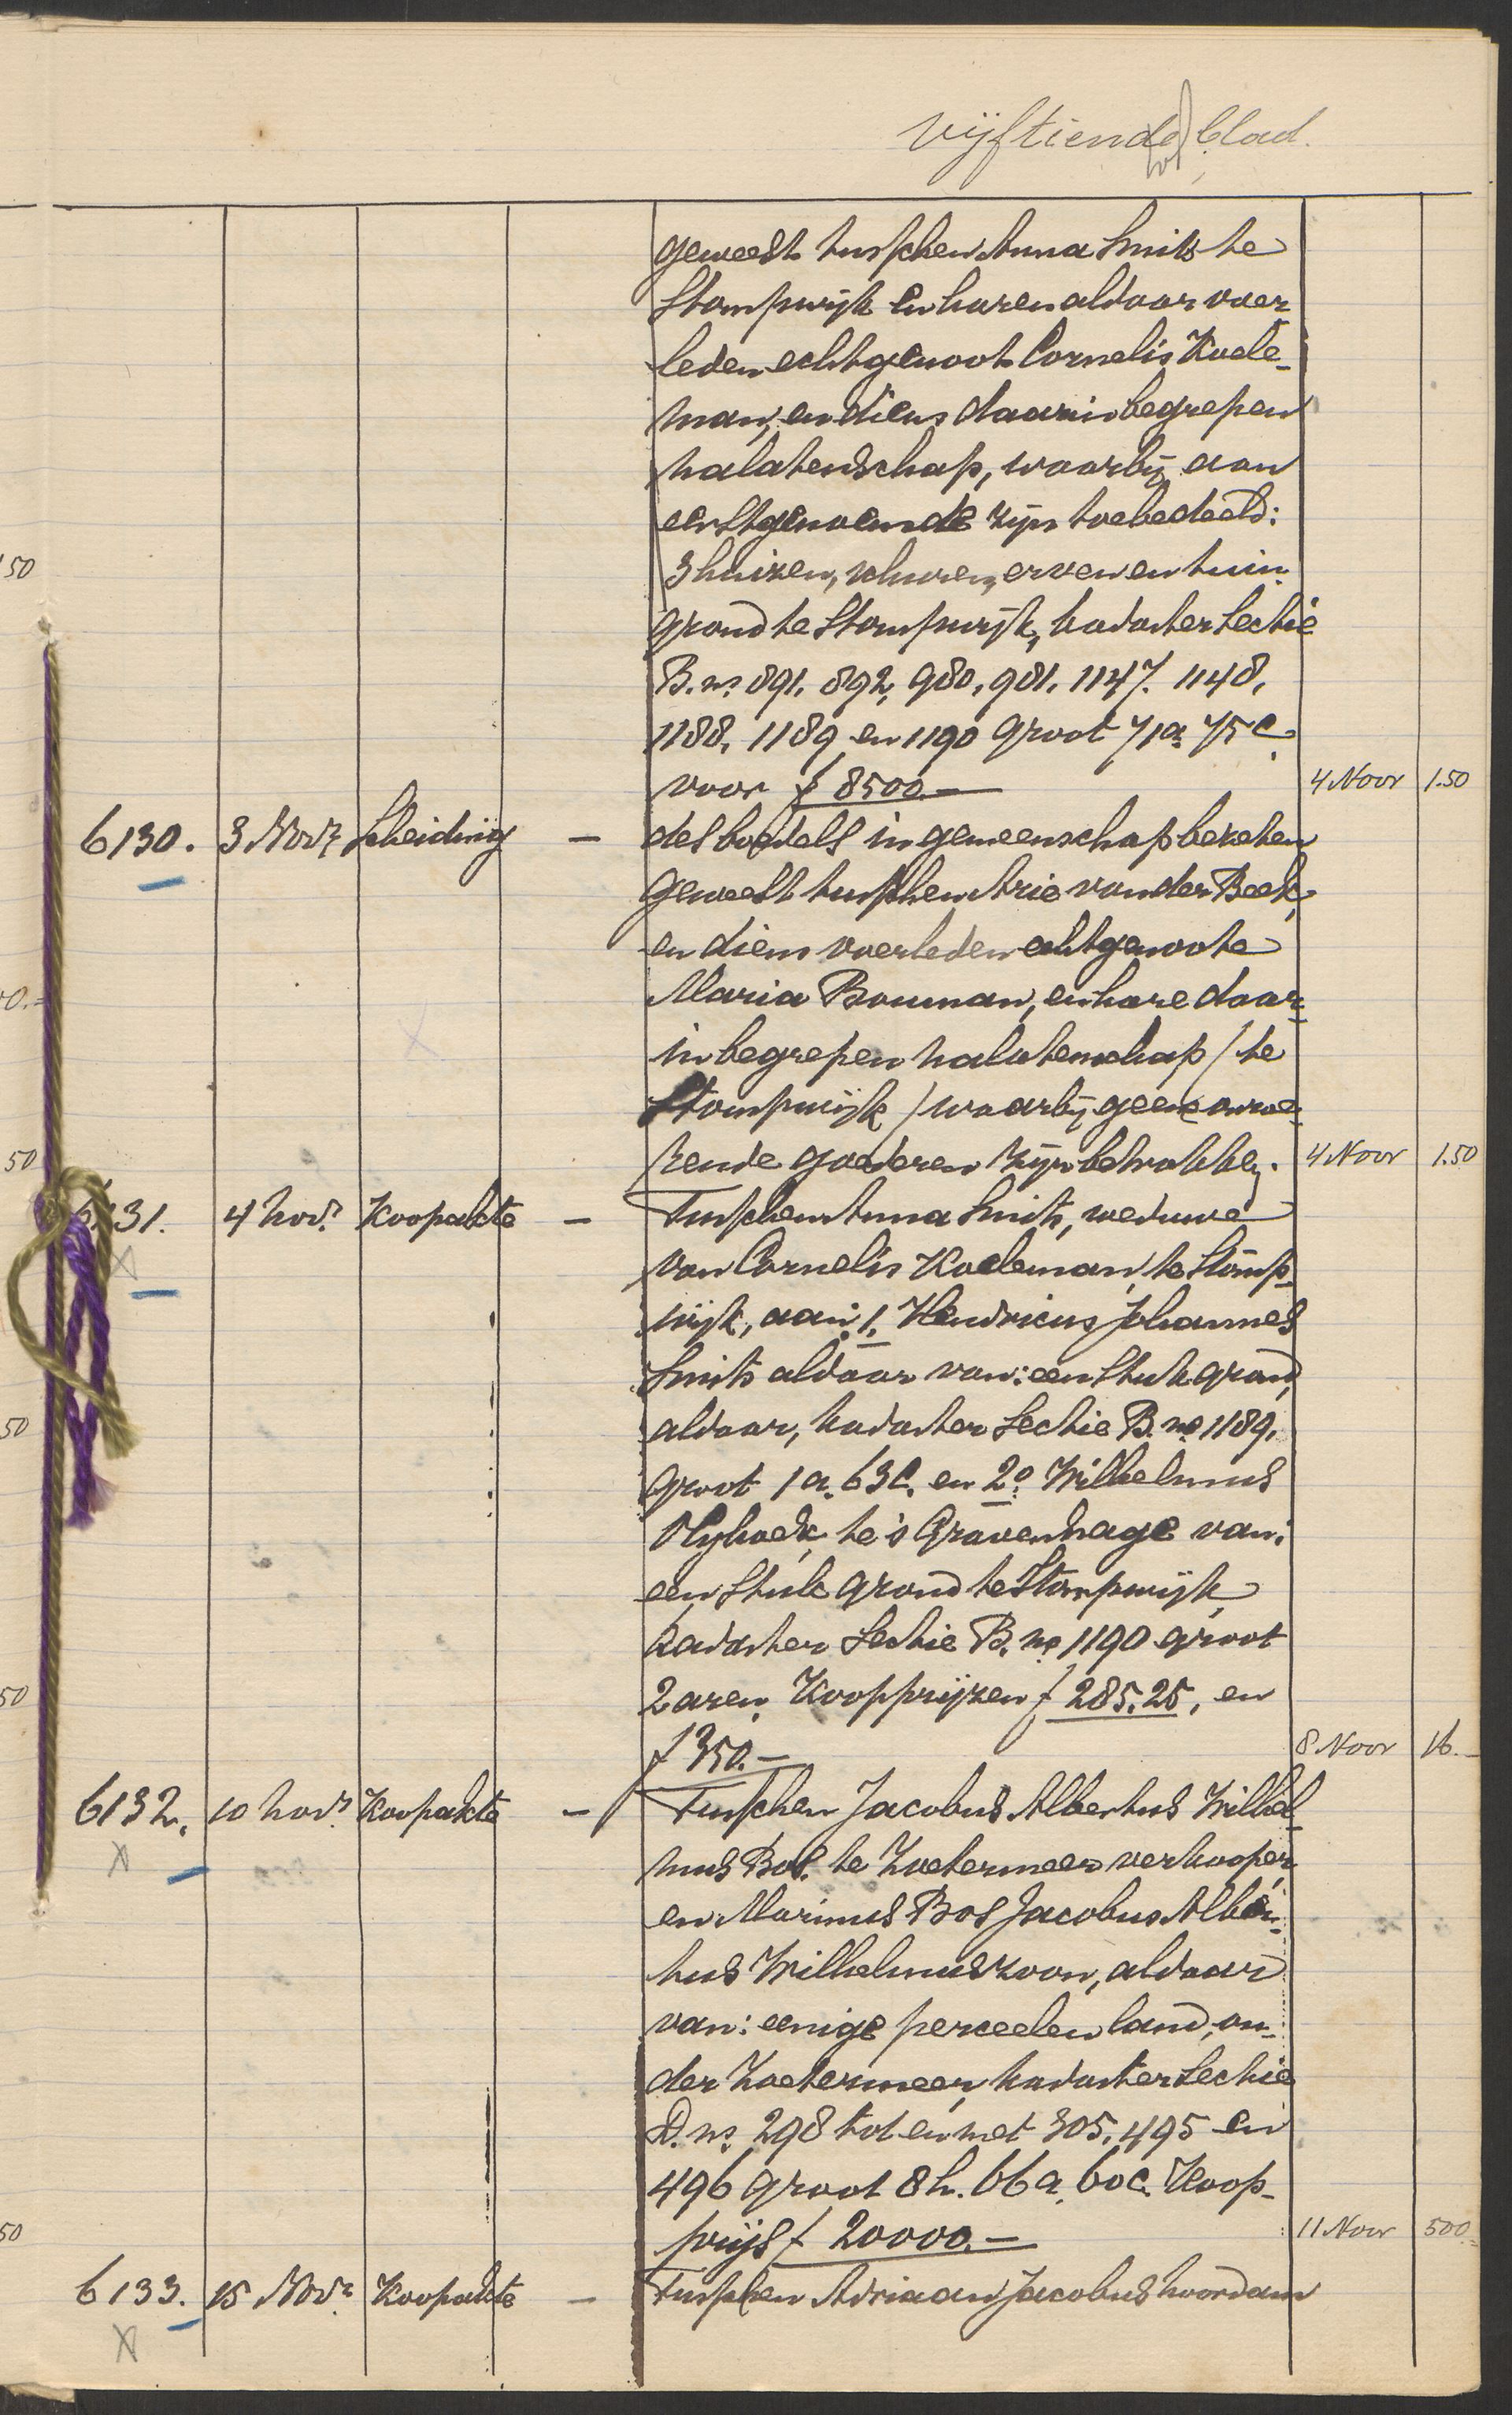 vijftiende blad.
geweest tusschen Anna Smits te
Stompwijk en haren aldaar over
leden echtgenoot Cornelis Koele-
man, en diens daarin begrepen
nalatenschap, waarbij aan
eerstgenoemde zijn toebedeeld:
3 huizen, schuren, erven en tuin
grond te Stompwijk, kadaster Sectie
B. no. 891, 892, 980, 981, 1147, 1148,
1188, 1189 en 1190 groot 71 a. 75 c.
voor f 8500.— 4 Nov 1.50
6130. 3 Novr Scheiding — des boedels in gemeenschap bezeten
geweest tusschen Arie van der Beek,
en diens overleden echtgenoote
Maria Bouman, en hare daar-
in begrepen nalatenschap / te
Stompwijk / waarbij geene onroe-
rende goederen zijn betrokken. 4 Nov 1.50
6131. 4 Novr Koopakte — Tusschen Anna Smits, weduwe
van Cornelis Koeleman, te Stomp-
wijk, aan: 1. Hendricus Johannes
Smits aldaar van: een stuk grond,
aldaar, kadaster Sectie B. no 1189,
groot 1 a. 63 c. en 2o Wilhelmus
te 's Gravenhage van:
een stuk grond te Stompwijk,
kadaster Sectie B. no 1190 groot
2 aren. Koopprijzen f 285.25, en
f 350.— 8 Nov 16.—
6132. 10 Novr Koopakte — Tusschen Jacobus Albertus Wilhel-
mus Bos. te Zoetermeer verkooper,
en Marinus Bos Jacobus Alber-
tus Wilhelmuszoon, aldaar
van: eenige perceelen land, on-
der Zoetermeer, kadaster Sectie
D. no. 298 tot en met 305, 495 en
496 groot 8 h. 66 a. 60 c. Koop-
prijs f 20000.— 11 Nov 500.—
6133. 15 Novr Koopakte — Tusschen Adriaan Jacobus Noordam